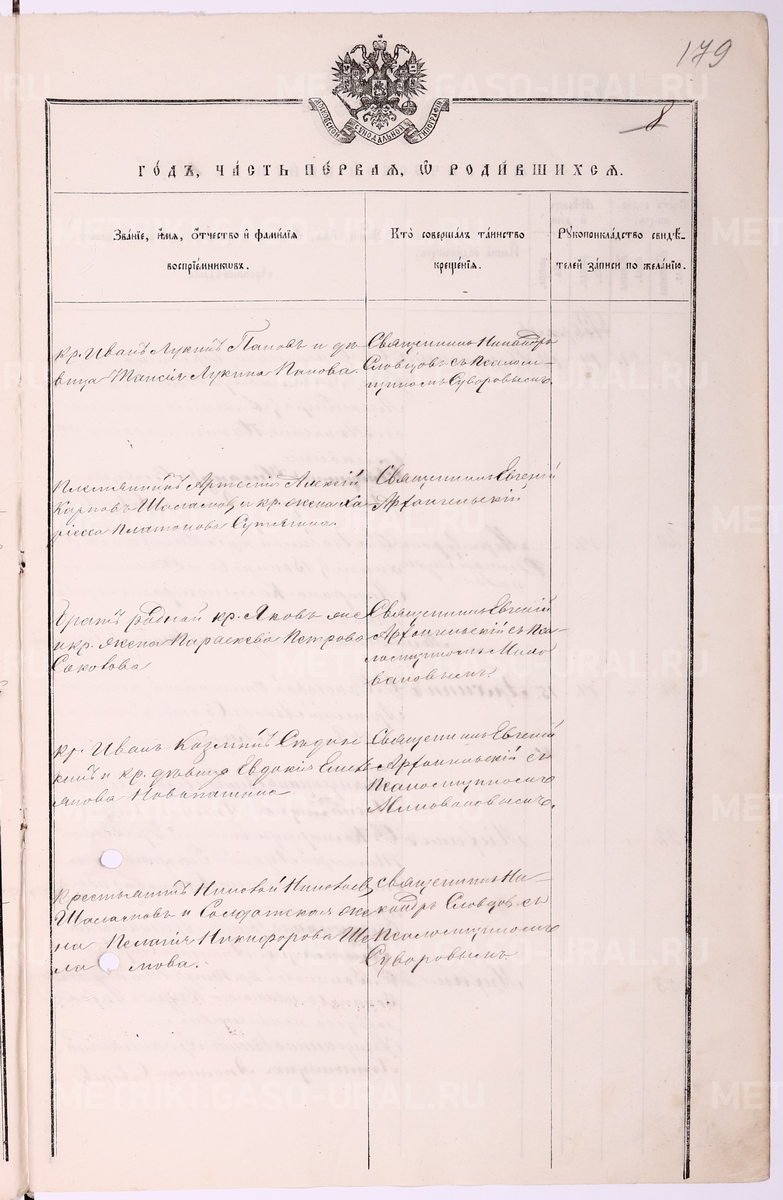 179
8
МОСКОВСКОЙ СѴНОДАЛЬНОЙ ТИПОГРАФІИ
ГО́ДЪ, ЧА́СТЬ ПЕ́РВАЯ, Ѽ РОДИ́ВШИХСЯ.
Зва́нїе, и҆́мя, ѻ҆́тчество и҆ фами́лїя
воспрїе́мникѡвъ.
Кто̀ соверша́лъ та́инство
креще́нїя.
Рꙋкоприкла́дство свидѣ́-
телей за́писи по жела́нїю.
кр. Иванъ Лукинъ Пановъ и дѣ-
вица Таисія Лукина Панова.
Священникъ Никандръ
Словцовъ съ псалом-
щикомъ Суворовымъ.
Племянникъ Алексій
Карповъ Шаламовъ и кр. жена Ха-
рiесса Платонова Сутягина.
Священникъ Евгеній
Архангельскій
Братъ родной кр. Яковъ
и кр. жена Параскева Петрова
Соковова
Священникъ Евгеній
Архангельскій съ пса-
ломщикомъ Мило-
вановымъ.
кр. Иванъ Козминъ
и кр. дѣвица Евдокія Емель
янова Новопашина
Священникъ Евгеній
Архангельскій съ
псаломщикомъ
Миловановымъ.
Крестьянинъ Николай Николаевъ
Шаламовъ и Солдатская же
на Пелагія Никифорова Ша
ламова.
священникъ Ни-
кандръ Словцовъ съ
псаломщикомъ
Суворовымъ.
METRIKI.GASO-URAL.RU